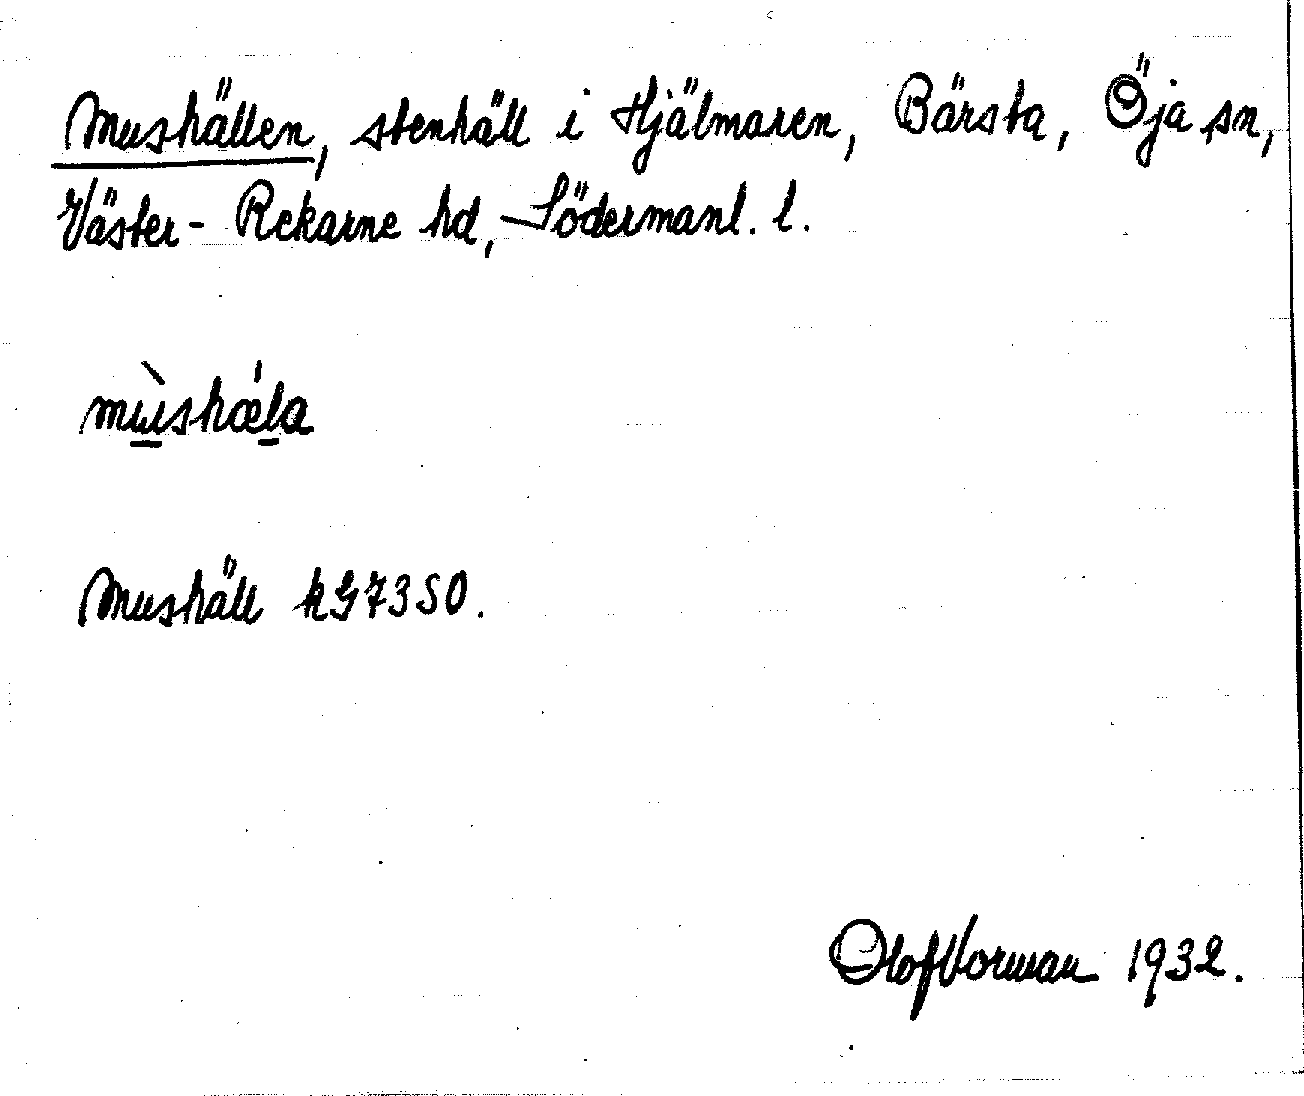 Mushällen, stenhäll i Hjälmaren, Bärsta, Öja sn,
Väster-Rekarne hd, Södermanl. l.
mùshǽla
Mushäll kG7350.
Olof Vorman 1932.